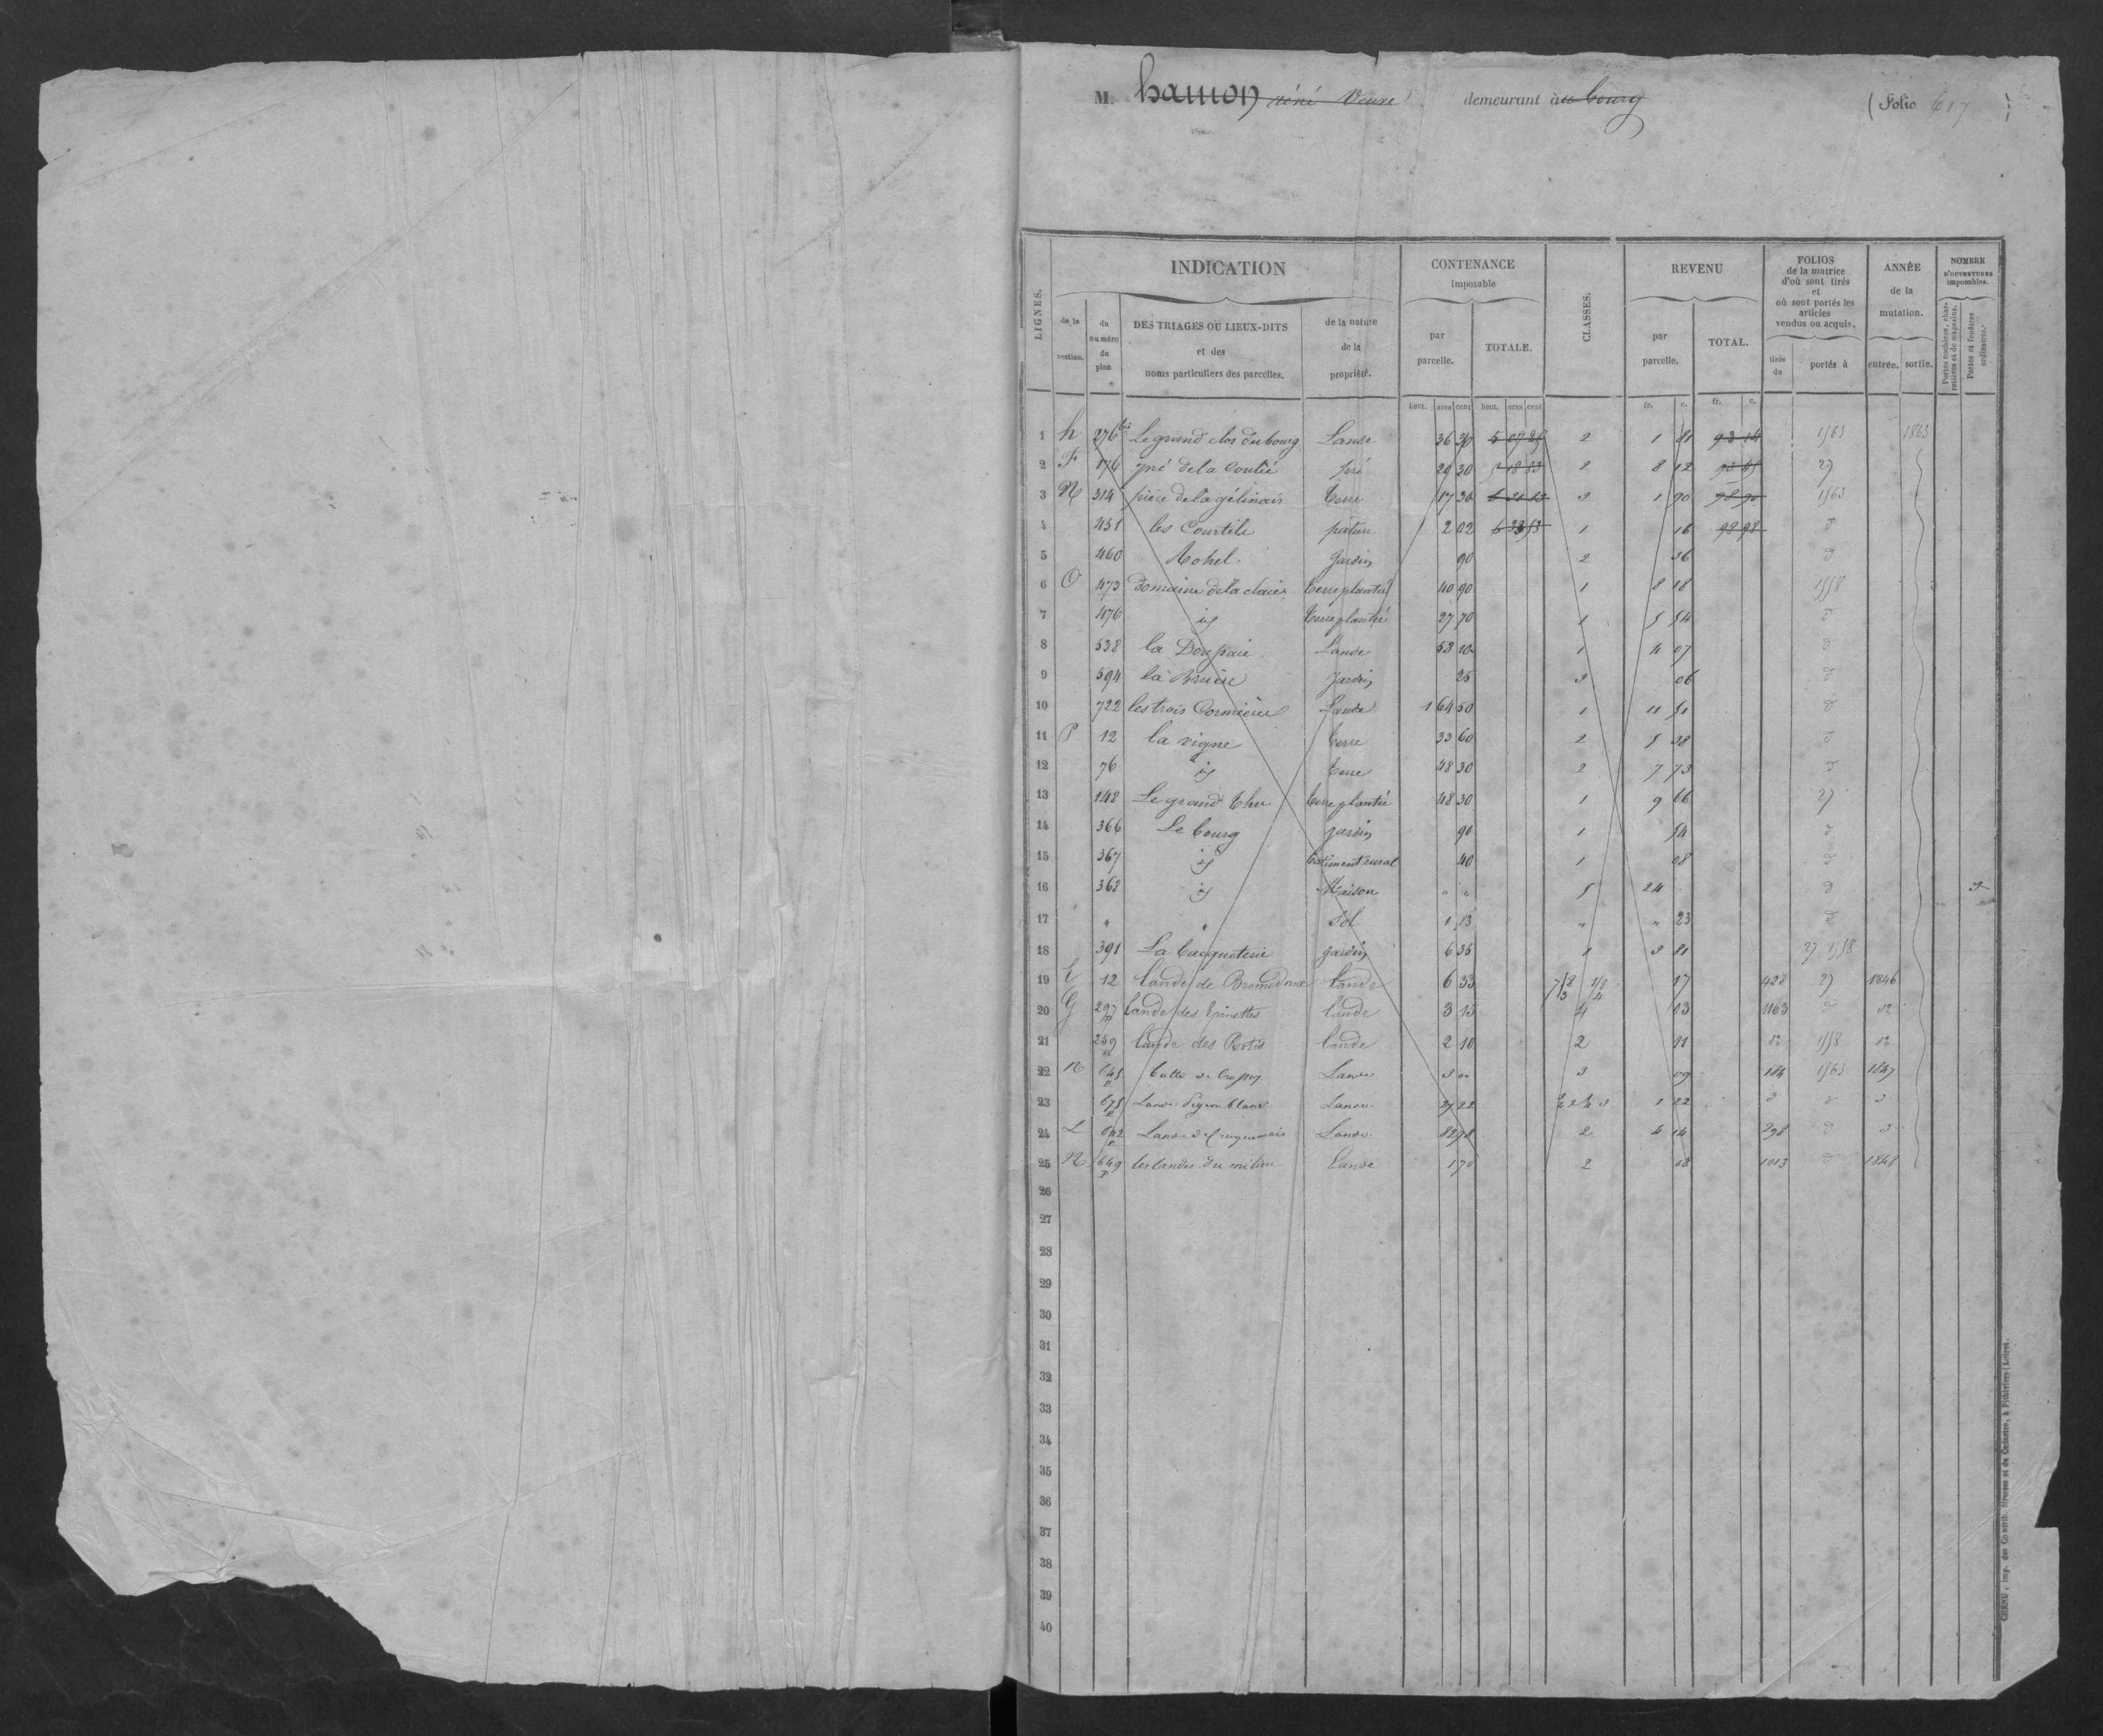 M. hamon réné Veuve demeurant à au bourg (Folio 617 )
LIGNES. INDICATION CONTENANCE imposable CLASSES. REVENU FOLIOS de la matrice d'où sont tirés et où sont portés les articles vendus ou acquis. ANNÉE de la mutation. NOMBRE D'OUVERTURES imposables.
de la section. du numéro du plan DES TRIAGES OU LIEUX-DITS et des noms particuliers des parcelles. de la nature de la propriété. par parcelle. TOTALE. par parcelle. TOTAL. tirés de portés à entrée. sortie. Portes et fenêtres ordinaires.
hect. ares cent hect. ares cent fr. c. fr. c.
1 h 276 bis Le grand clos du bourg Lande 36 20 5 07 25 2 1 81 93 14 1563 1863
2 F 176 pré de la Coutié pré 29 30 5 18 83 2 8 12 27
3 N 314 pièce de la gélinais terre 17 30 3 1 90 98 90 1563
4 451 les Courtils pature 2 02 1 16 98 98 d
5 460 Jardin 90 2 36 d
6 O 473 Domaine de la claies terre plantée 40 90 1 8 18 1558
7 476 id terre plantée 27 70 1 5 54 d
8 538 Lande 58 10 1 4 07 d
9 594 la Bruère Jardin 25 3 06 d
10 722 les trois Cormiers Lande 1 64 50 1 11 51 d
11 P 12 la vigne terre 33 60 2 5 38 d
12 76 id terre 48 30 2 7 73 d
13 148 Le grand terre plantée 48 30 1 9 66 27
14 366 Le bourg jardin 90 1 54 d
15 367 id batiment rural 40 1 08 d
16 368 id Maison " " 5 24 d 3
17 " " Sol 1 13 " " 23 d
18 391 La jardin 6 35 1 3 81 27 1558
19 E 12 Lande de Lande 6 33 17 428 27 1846
20 G 297 p Lande des Epinettes Lande 3 15 4 03 1163 d do
21 259 p Lande des Lande 2 10 2 11 do 1558 do
22 N 645 p butte Lande 3 00 3 09 184 1563 1847
23 675 p Lande Pigeon blanc Lande 27 22 1 22 d d d
24 L 642 p Lande Lande 82 78 2 4 14 298 d d
25 N 649 p les landes du milieu Lande 1 70 2 08 1013 d 1848
26
27
28
29
30
31
32
33
34
35
36
37
38
39
40
CHENU, imp. des Contrib. directes et du Cadastre, à Pithiviers (Loiret.